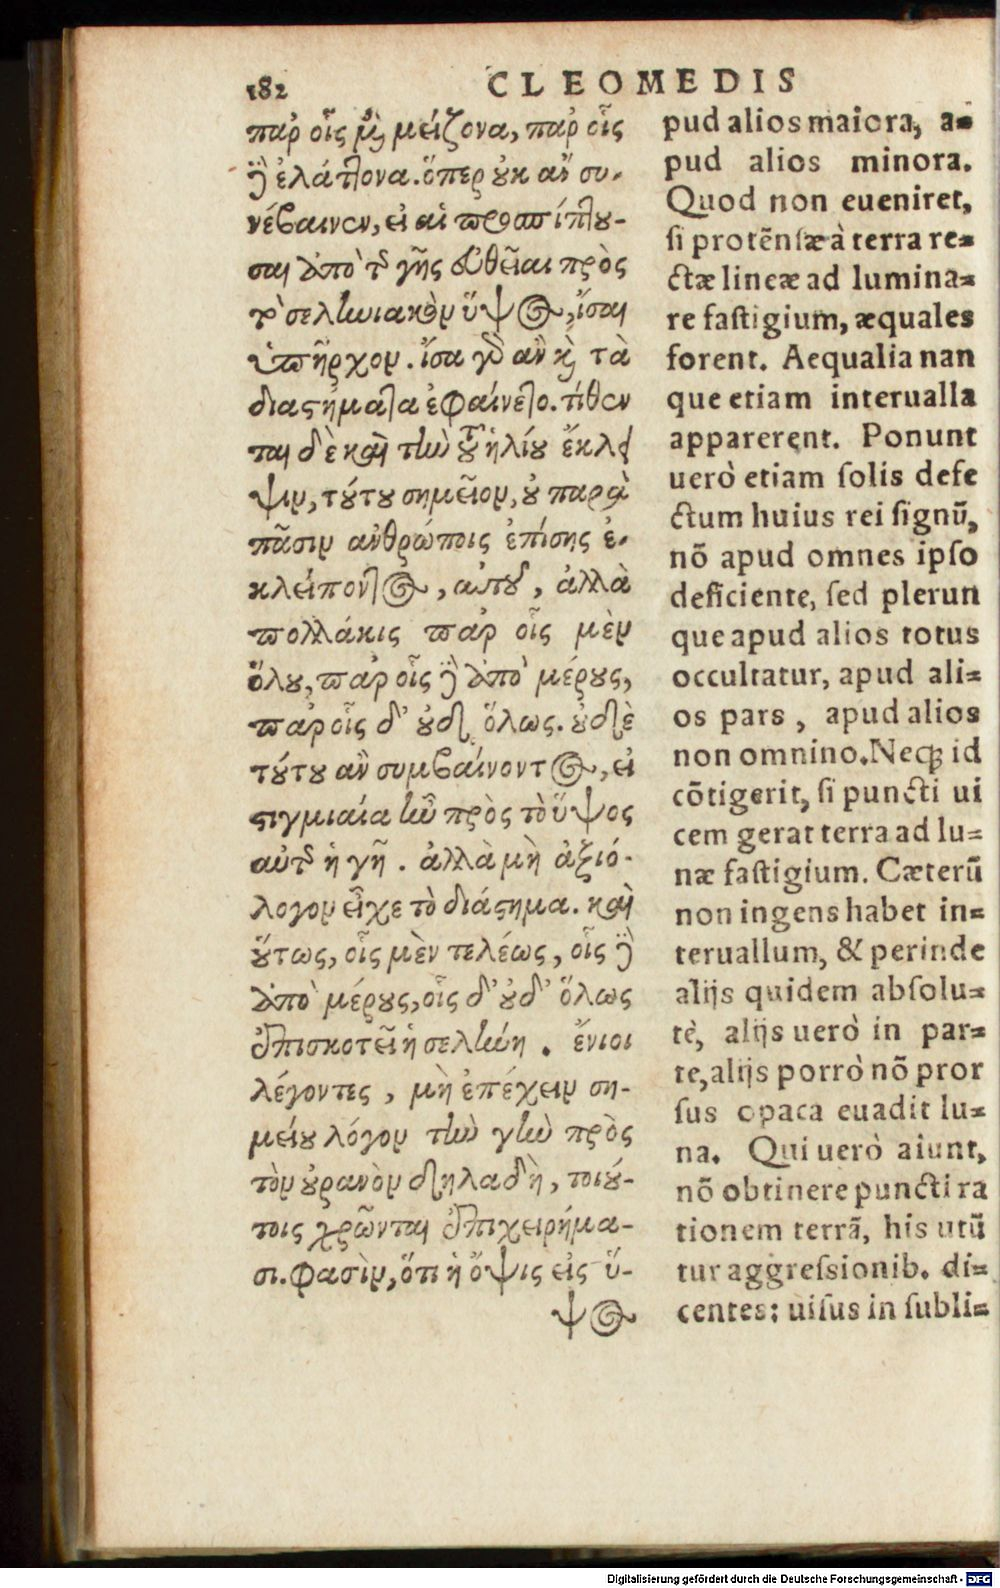 182
CLEOMEDIS
παρ' οἷς μὲν μείζονα, παρ' οἷς
δὲ ἐλάττονα. ὅπερ οὐκ ἂν συ-
νέβαινεν, εἰ αἱ προσπίπτου-
σαι ἀπὸ τῆς γῆς εὐθεῖαι πρὸς
τὸ σεληνιακὸν ὕψος, ἴσαι
ὑπῆρχον. ἴσα γὰρ ἂν καὶ τὰ
διαστήματα ἐφαίνετο. τίθεν
ται δὲ καὶ τὴν τοῦ ἡλίου ἔκλει
ψιν, τούτου σημεῖον, οὐ παρὰ
πᾶσιν ἀνθρώποις ἐπίσης ἐ-
κλείποντος, αὐτοῦ, ἀλλὰ
πολλάκις παρ' οἷς μὲν
ὅλου, παρ' οἷς δὲ ἀπὸ μέρους,
παρ' οἷς δ' οὐδὲ ὅλως. οὐδὲ
τούτου ἂν συμβαίνοντος, εἰ
στιγμιαία ἦν πρὸς τὸ ὕψος
αὐτῆς ἡ γῆ. ἀλλὰ μὴ ἀξιό-
λογον εἶχε τὸ διάστημα. καὶ
οὕτως, οἷς μὲν τελέως, οἷς δὲ
ἀπὸ μέρους, οἷς δ' οὐδ' ὅλως
ἐπισκοτεῖ ἡ σελήνη. ἔνιοι
λέγοντες, μὴ ἐπέχειν ση-
μείου λόγον τὴν γῆν πρὸς
τὸν οὐρανὸν δηλαδὴ, τοιού-
τοις χρῶνται ἐπιχειρήμα-
σι. φασὶν, ὅτι ἡ ὄψις εἰς ὕ-
ψος
pud alios maiora, a-
pud alios minora.
Quod non eueniret,
si protēnsæ à terra re-
ctæ lineæ ad lumina-
re fastigium, æquales
forent. Aequalia nan
que etiam interualla
apparerent. Ponunt
uerò etiam solis defe
ctum huius rei signū,
nō apud omnes ipso
deficiente, sed plerun
que apud alios totus
occultatur, apud ali-
os pars, apud alios
non omnino. Neq; id
cōtigerit, si puncti ui
cem gerat terra ad lu-
næ fastigium. Cæterū
non ingens habet in-
teruallum, & perinde
alijs quidem absolu-
tè, alijs uerò in par-
te, alijs porrò nō pror
sus opaca euadit lu-
na. Qui uerò aiunt,
nō obtinere puncti ra
tionem terrā, his utū
tur aggressionib. di-
centes: uisus in subli-
Digitalisierung gefördert durch die Deutsche Forschungsgemeinschaft - DFG